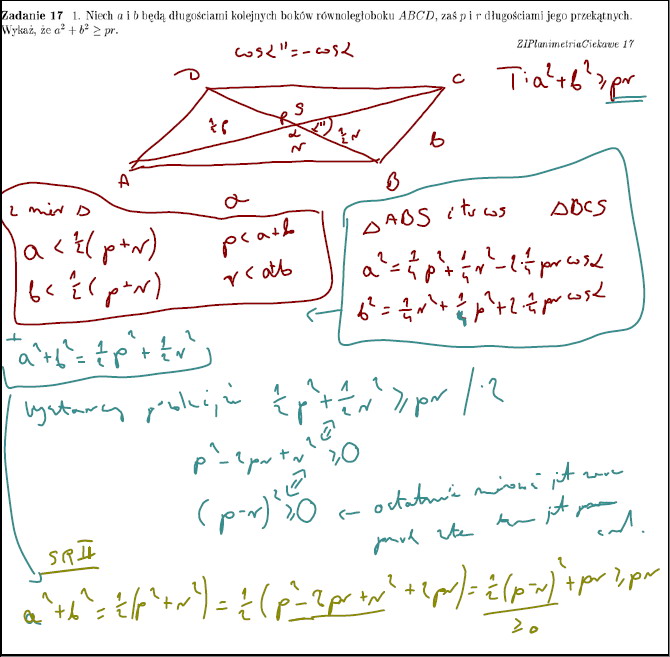 Zadanie 17 1. Niech a i b będą długościami kolejnych boków równoległoboku ABCD, zaś p i r długościami jego przekątnych.
Wykaż, że a² + b² ≥ pr.
ZIPlanimetriaCiekawe 17
cosα'' = -cosα
T: a² + b² ≥ pr
D
C
S
p
½p
α''
½r
α
r
b
A
B
a
z nier Δ
a < ½(p+r)
p < a+b
b < ½(p+r)
r < a+b
ΔABS i tw cos ΔBCS
a² = ¼p² + ¼r² - 2·¼pr cosα
b² = ¼r² + ¼p² + 2·¼pr cosα
+
a² + b² = ½p² + ½r²
Wystarczy ½p² + ½r² ≥ pr /·2
p² - 2pr + r² ≥ 0
(p-r)² ≥ 0 ← ostatnia jest
jest
cnd.
SP II
a² + b² = ½(p² + r²) = ½(p² - 2pr + r² + 2pr) = ½(p-r)² + pr ≥ pr
≥ 0